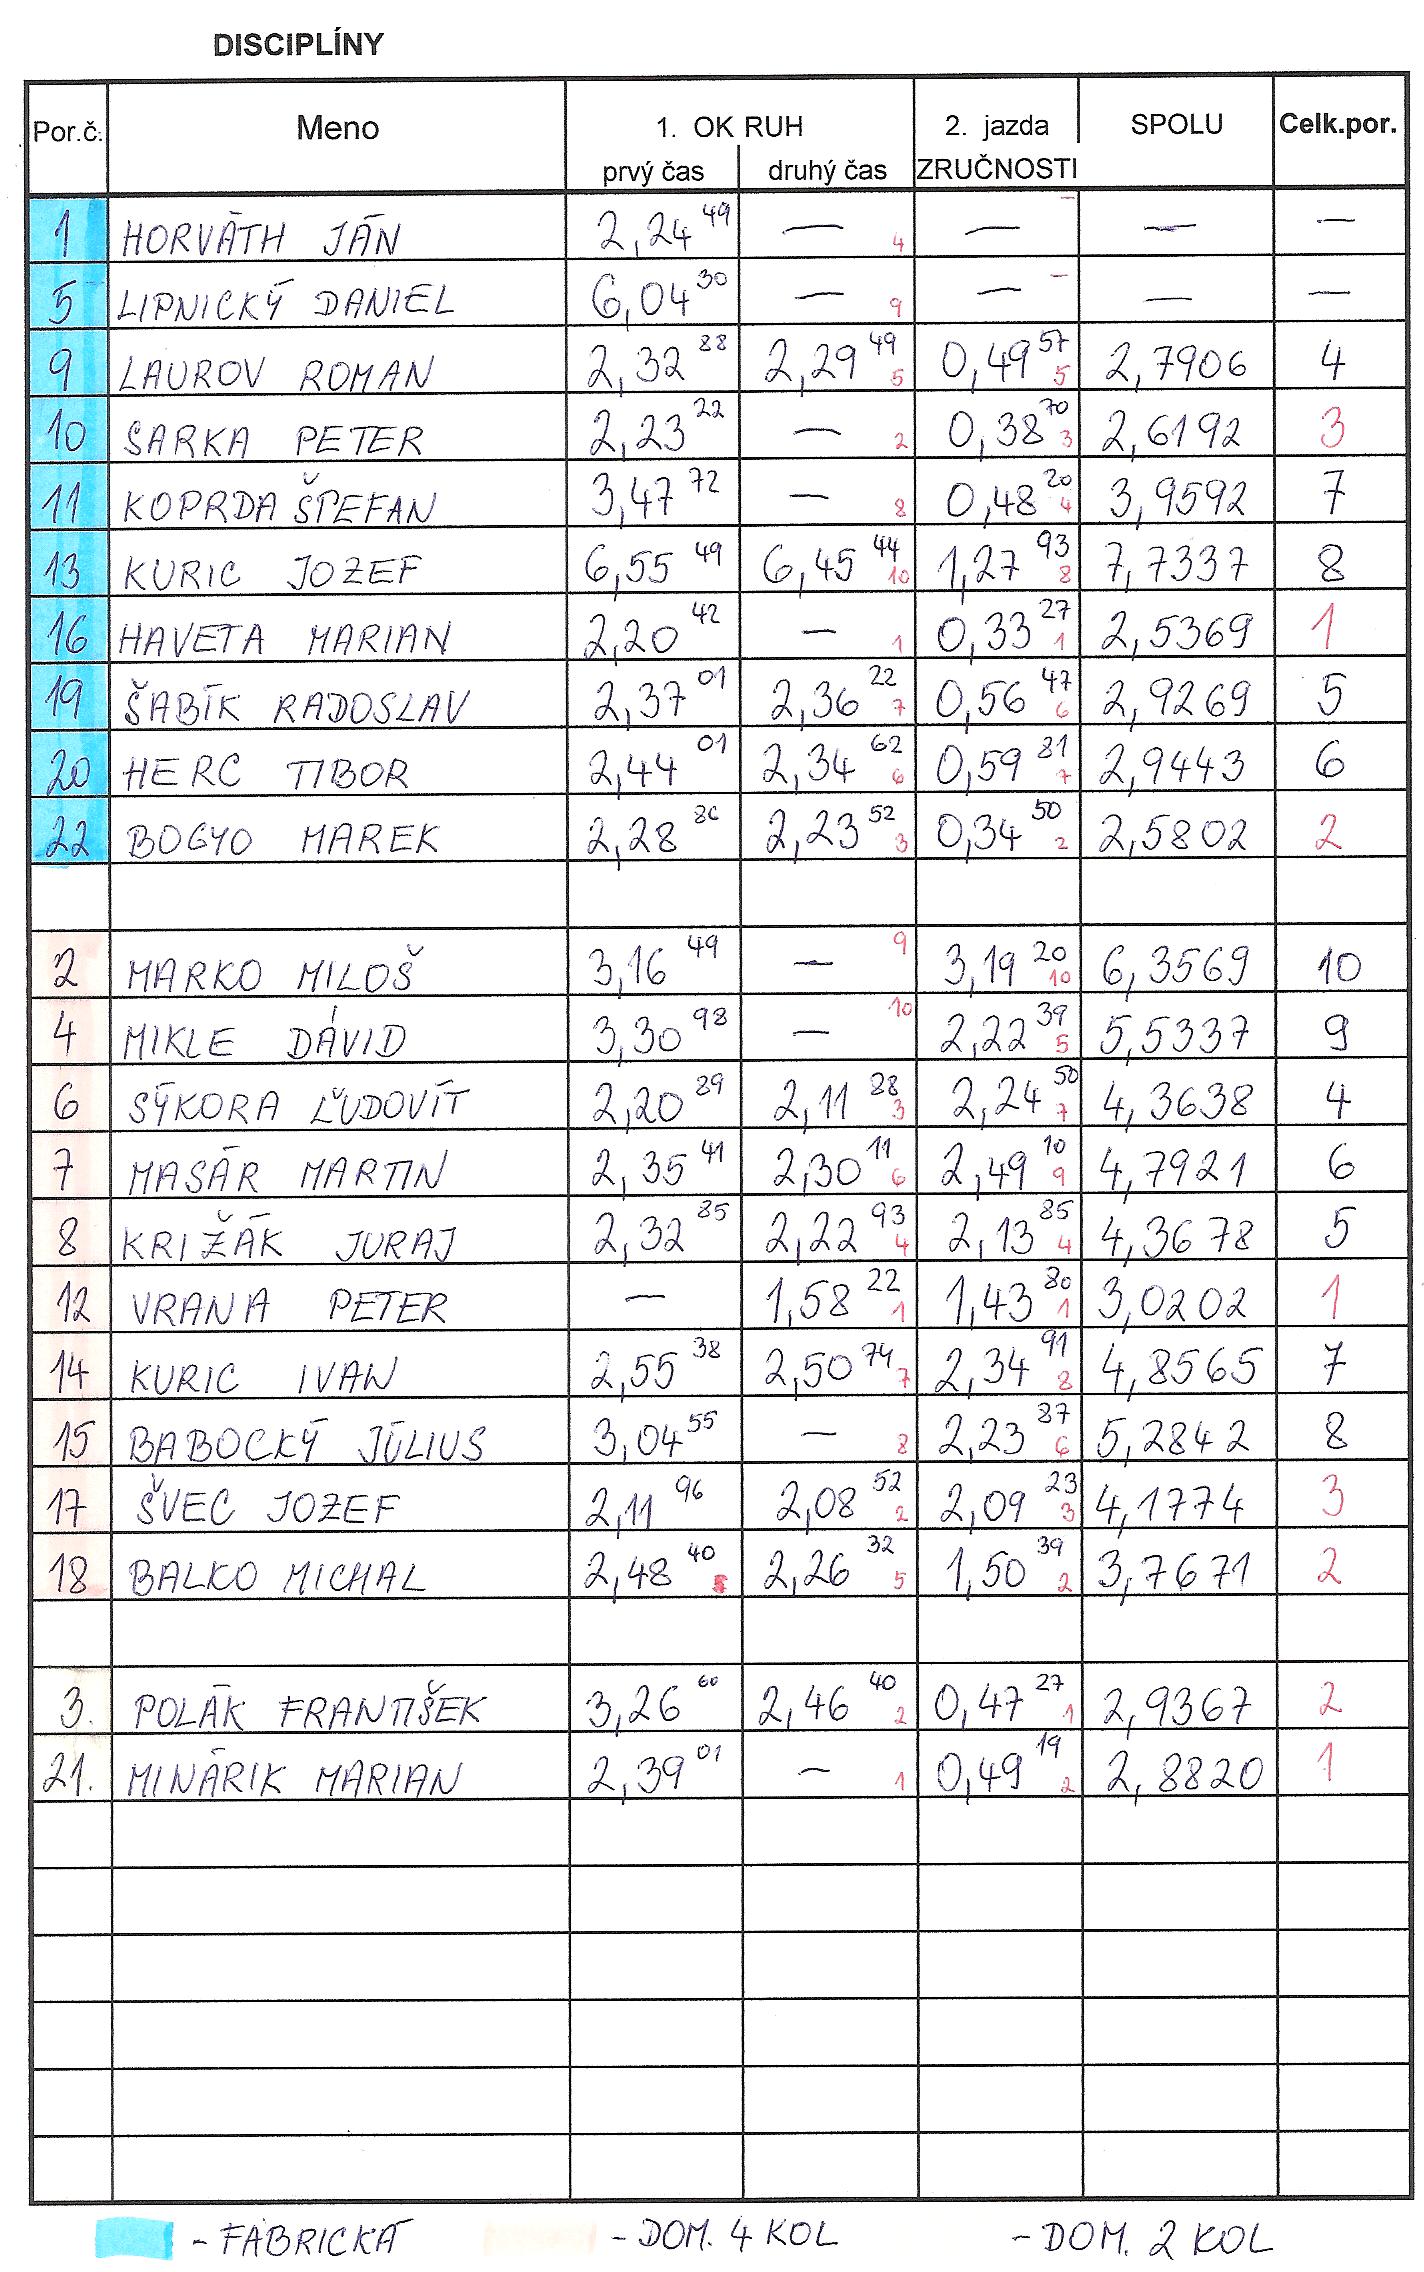 DISCIPLÍNY
Por.č. Meno 1. OKRUH 2. jazda SPOLU Celk.por.
prvý čas druhý čas ZRUČNOSTI
1 HORVÁTH JÁN 2,24 49 — 4 — – — —
5 LIPNICKÝ DANIEL 6,04 30 — 9 — – — —
9 LAUROV ROMAN 2,32 88 2,29 49 5 0,49 57 5 2,7906 4
10 SARKA PETER 2,23 22 — 2 0,38 70 3 2,6192 3
11 KOPRDA ŠTEFAN 3,47 72 — 8 0,48 20 4 3,9592 7
13 KURIC JOZEF 6,55 49 6,45 44 10 1,27 93 8 7,7337 8
16 HAVETA MARIAN 2,20 42 — 1 0,33 27 1 2,5369 1
19 ŠABÍK RADOSLAV 2,37 01 2,36 22 7 0,56 47 6 2,9269 5
20 HERC TIBOR 2,44 01 2,34 62 6 0,59 81 7 2,9443 6
22 BOGYO MAREK 2,28 86 2,23 52 3 0,34 50 2 2,5802 2
2 MARKO MILOŠ 3,16 49 — 9 3,19 20 10 6,3569 10
4 MIKLE DÁVID 3,30 98 — 10 2,22 39 5 5,5337 9
6 SÝKORA ĽUDOVÍT 2,20 89 2,11 88 3 2,24 50 7 4,3638 4
7 MASÁR MARTIN 2,35 41 2,30 11 6 2,49 10 9 4,7921 6
8 KRIŽÁK JURAJ 2,32 85 2,22 93 4 2,13 85 4 4,3678 5
12 VRANA PETER — 1,58 22 1 1,43 80 1 3,0202 1
14 KURIC IVAN 2,55 38 2,50 74 7 2,34 91 8 4,8565 7
15 BABOCKÝ JÚLIUS 3,04 55 — 8 2,23 87 6 5,2842 8
17 ŠVEC JOZEF 2,11 96 2,08 52 2 2,09 23 3 4,1774 3
18 BALKO MICHAL 2,48 40 2,26 32 5 1,50 39 2 3,7671 2
3. POLÁK FRANTIŠEK 3,26 60 2,46 40 2 0,47 27 1 2,9367 2
21. MINÁRIK MARIAN 2,39 01 — 1 0,49 19 2 2,8820 1
- FABRICKÁ - DOM. 4 KOL - DOM. 2 KOL